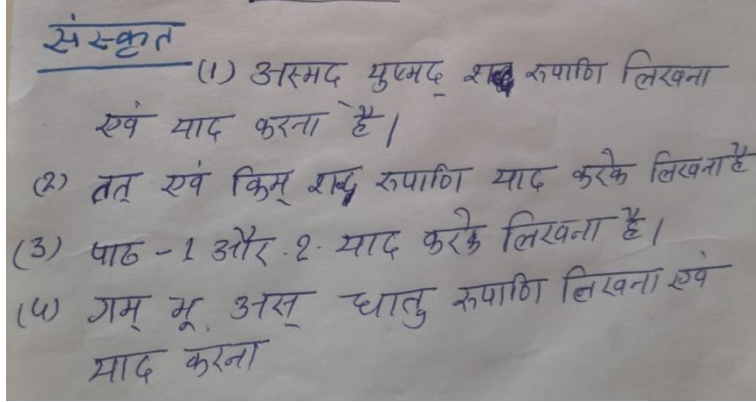 संस्कृत
(1) अस्मद युष्मद् शब्द रुपाणि लिखना
एवं याद करना है।
(2) तत् एवं किम् शब्द रुपाणि याद करके लिखना है
(3) पाठ - 1 और 2. याद करके लिखना है।
(4) गम् भू, अस् धातु रुपाणि लिखना एवं
याद करना